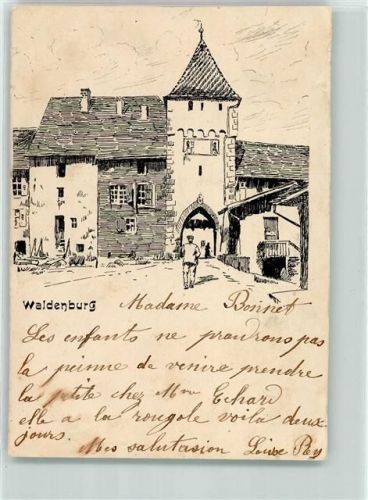 Waldenburg
Madame Bonnet
Les enfants ne praudrons pas
la peinne de venire prendre
la petite chez Mme Echard
elle a la rougole voila deux
jours.
Mes salutasion Louise Rey